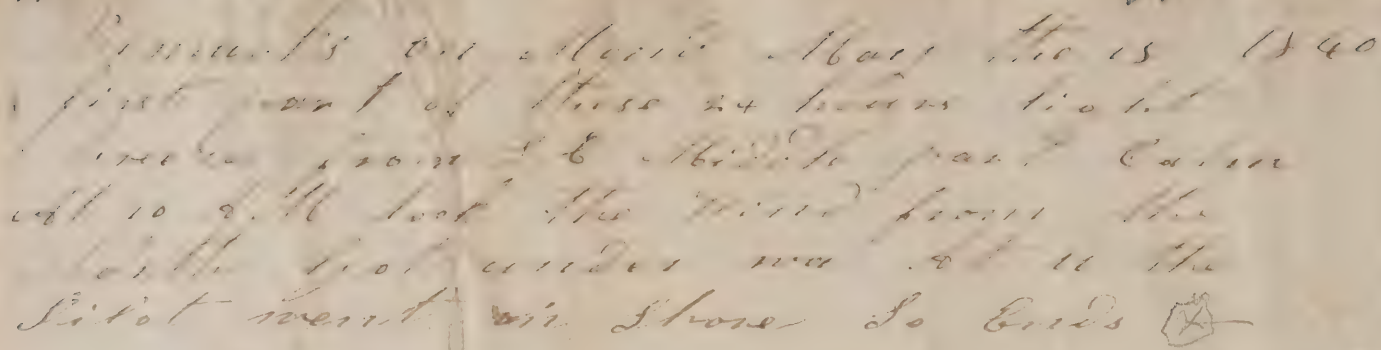 Remarks on Mond May the 15 1840
first part of these 24 hours light
from S E Middle part Calm
at 10 A.M took the wind from the
North Got under wa At 11 the
Pilot went on Shore So Ends